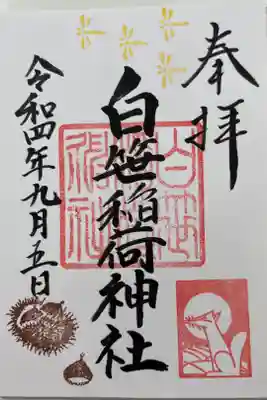 奉拝
白笹稲荷神社
令和四年九月五日